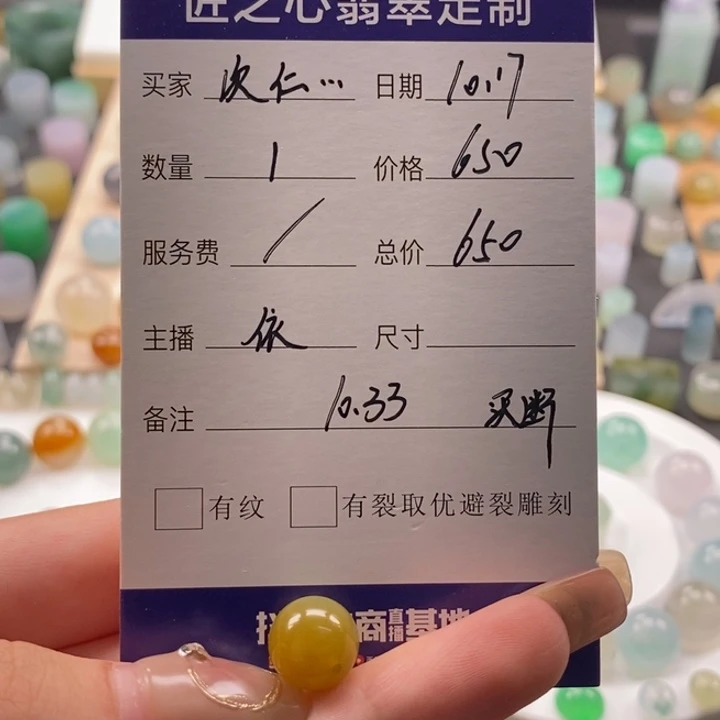 匠之心翡翠定制
买家 次仁... 日期 10.17
数量 1 价格 650
服务费 / 总价 650
主播 依 尺寸
备注 10.33 买断
有纹 有裂取优避裂雕刻
商直播基地